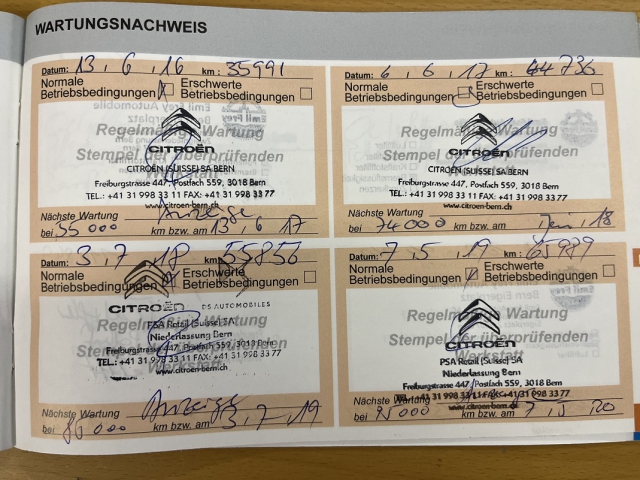 WARTUNGSNACHWEIS
Datum: 13, 6, 16 km: 35991
Normale Betriebsbedingungen Erschwerte Betriebsbedingungen
Regelmäßige Wartung
CITROËN
Stempel der überprüfenden Werkstatt
CITROËN (SUISSE) SA BERN
Freiburgstrasse 447, Postfach 559, 3018 Bern
TEL.: +41 31 998 33 11 FAX: +41 31 998 33 77
www.citroen-bern.ch
Nächste Wartung Anzeige
bei 55000 km bzw. am 13, 6, 17
Datum: 6, 6, 17 km: 44736
Normale Betriebsbedingungen Erschwerte Betriebsbedingungen
Regelmäßige Wartung
CITROËN
Stempel der überprüfenden Werkstatt
CITROËN (SUISSE) SA BERN
Freiburgstrasse 447, Postfach 559, 3018 Bern
TEL.: +41 31 998 33 11 FAX: +41 31 998 33 77
www.citroen-bern.ch
Nächste Wartung
bei 74000 km bzw. am Juni, 18
Datum: 3, 7, 18 km: 55856
Normale Betriebsbedingungen Erschwerte Betriebsbedingungen
CITROËN DS AUTOMOBILES
Regelmäßige Wartung
PSA Retail (Suisse) SA
Stempel der überprüfenden Werkstatt
Niederlassung Bern
Freiburgstrasse 447, Postfach 559, 3018 Bern
TEL.: +41 31 998 33 11 FAX: +41 31 998 33 77
www.citroen-bern.ch
Nächste Wartung Anzeige
bei 86000 km bzw. am 3, 7, 19
Datum: 7, 5, 19 km: 65989
Normale Betriebsbedingungen Erschwerte Betriebsbedingungen
Regelmäßige Wartung
CITROËN
Stempel der überprüfenden Werkstatt
PSA Retail (Suisse) SA
Niederlassung Bern
Freiburgstrasse 447, Postfach 559, 3018 Bern
TEL.: +41 31 998 33 11 FAX: +41 31 998 33 77
www.citroen-bern.ch
Nächste Wartung
bei 95000 km bzw. am 7, 5, 20